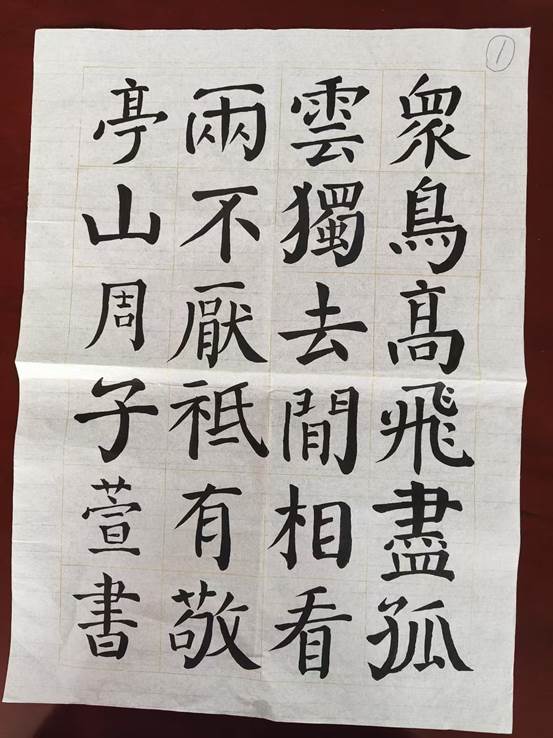 1
衆鳥高飛盡孤
雲獨去間相看
兩不厭祗有敬
亭山周子萱書